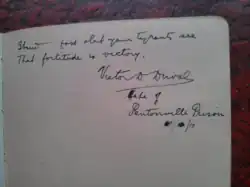 Show your glad your tyrants are
That fortitude is victory.
Victor D. Duval
late of
Pentonville Prison